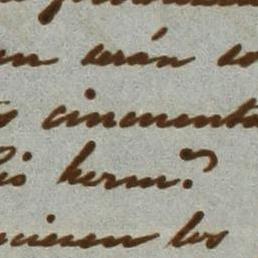 en serán co
s cincuenta
io herm.º
cienen los